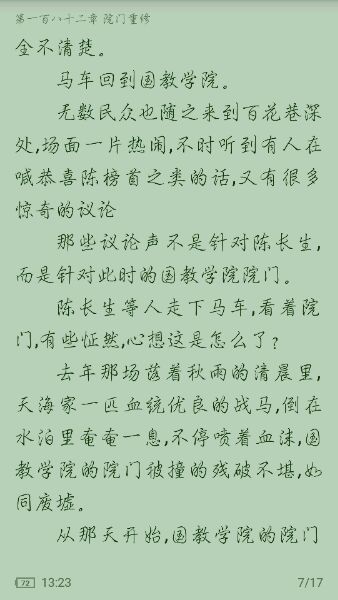 第一百八十二章 院门重修
全不清楚。
马车回到国教学院。
无数民众也随之来到百花巷深
处,场面一片热闹,不时听到有人在
喊恭喜陈榜首之类的话,又有很多
惊奇的议论
那些议论声不是针对陈长生,
而是针对此时的国教学院院门。
陈长生等人走下马车,看着院
门,有些怔然,心想这是怎么了?
去年那场落着秋雨的清晨里,
天海家一匹血统优良的战马,倒在
水泊里奄奄一息,不停喷着血沫,国
教学院的院门被撞的残破不堪,如
同废墟。
从那天开始,国教学院的院门
72 13:23 7/17